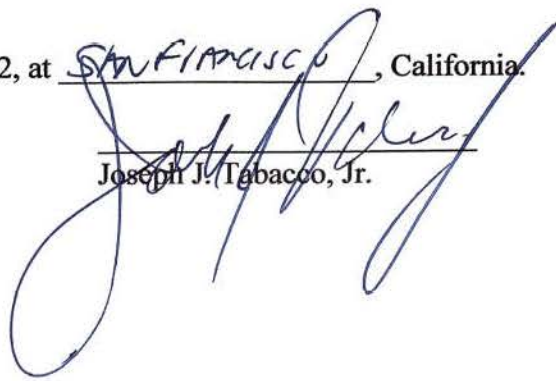 2, at SAN FIANCISCO, California.
Joseph J. Tabacco, Jr.